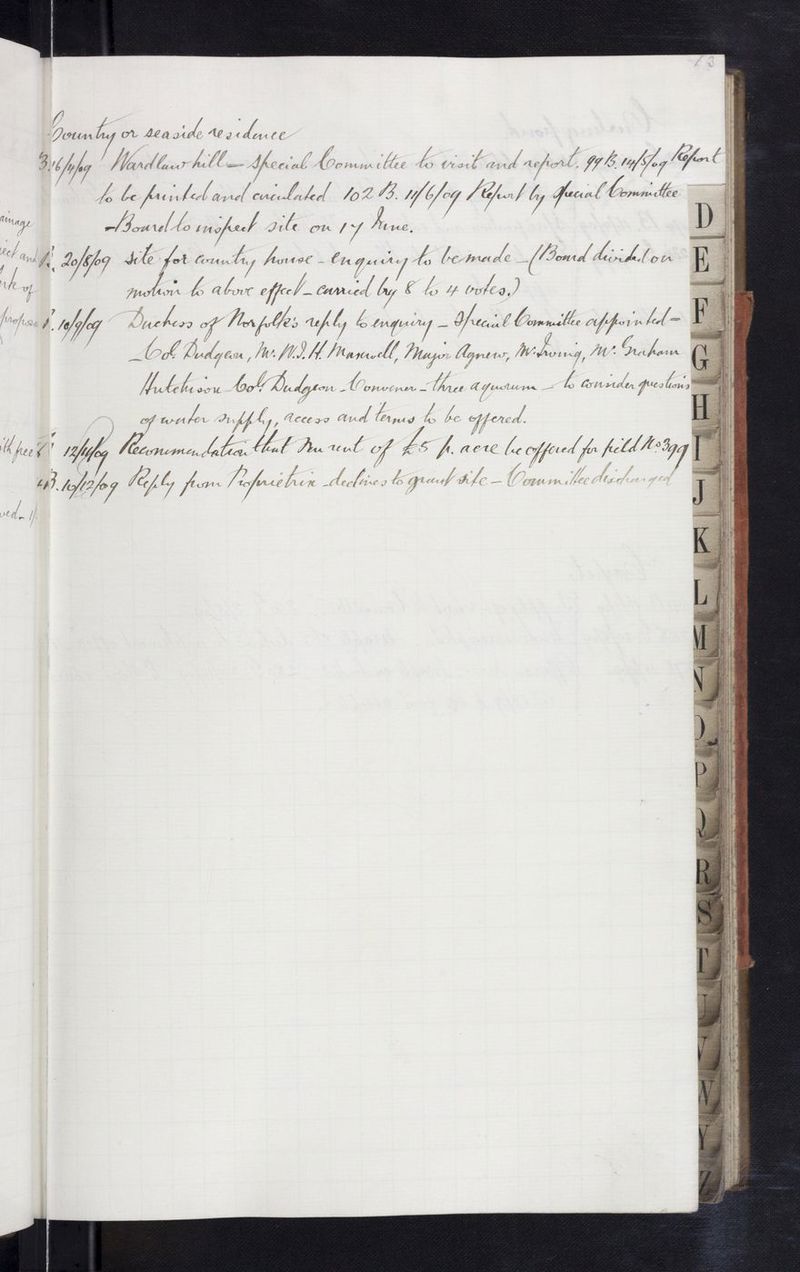 Country or seaside residence
B. 16/4/09 Wardlaw hill — Special Committee to visit and report. 99 B. 14/5/09 Report
to be printed and circulated 102 B. 11/6/09 Report by Special Committee
- Board to inspect site on 17 June.
20/8/09 Site for country house - enquiry to be made - (Board divided on
motion to above effect - carried by 8 to 4 votes.)
10/9/09 Duchess of Norfolk's reply to enquiry - Special Committee appointed -
- Col. Dudgeon, Mr. W.J.H. Maxwell, Major Agnew, Mr. Irving, Mr. Graham
Hutchison Col. Dudgeon - Convener - three a quorum - to consider questions
of water supply, access and terms to be offered.
12/11/09 Recommendation that an rent of £5 p. acre be offered for field No 399
B. 10/12/09 Reply from Proprietrix - declines to grant site - Committee discharged
D
E
F
G
H
I
J
K
L
M
N
O
P
Q
R
S
T
U
V
W
Y
Z